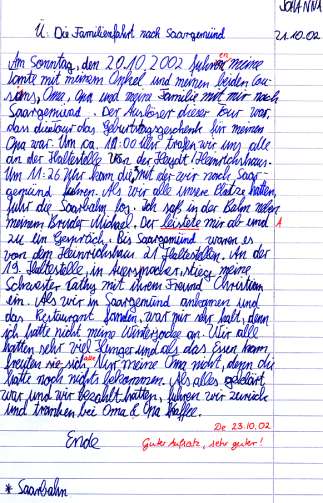 JOHANNA
Ü: Die Familienfahrt nach Saargemünd
21.10.02
Am Sonntag, den 20.10.2002 fuhren meine
Tante mit meinem Onkel und meinen beiden Cou-
sins, Oma, Opa und meine Familie mit mir nach
Saargemünd. Der Auslöser dieser Tour war,
dass die Tour das Geburtstagsgeschenk für meinen
Opa war. Um ca. 11:00 Uhr trafen wir uns alle
an der Haltestelle von der Haupt Heinrichshaus.
Um 11:26 Uhr kam die, mit der wir nach Saar-
gemünd fuhren. Als wir alle unsere Plätze hatten,
fuhr die Saarbahn los. Ich saß in der Bahn neben
meinem Bruder Michael. Der leistete mir ab und
zu ein Gespräch. Bis Saargemünd waren es
von dem Heinrichshaus 21 Haltestellen. An der
19. Haltestelle, in stieg meine
Schwester Kathy mit ihrem Freund Christian
ein. Als wir in Saargemünd ankamen und
das Restaurant fanden, war mir sehr kalt, denn
ich hatte nicht meine Winterjacke an. Wir alle
hatten sehr viel Hunger und als das Essen kam
freuten sich alle. Nur meine Oma nicht, denn die
hatte noch nichts bekommen. Als alles geklärt
war und wir bezahlt hatten, fuhren wir zurück
und tranken bei Oma & Opa Kaffee.
De 23.10.02
Ende
Guter Aufsatz, sehr guter!
* Saarbahn